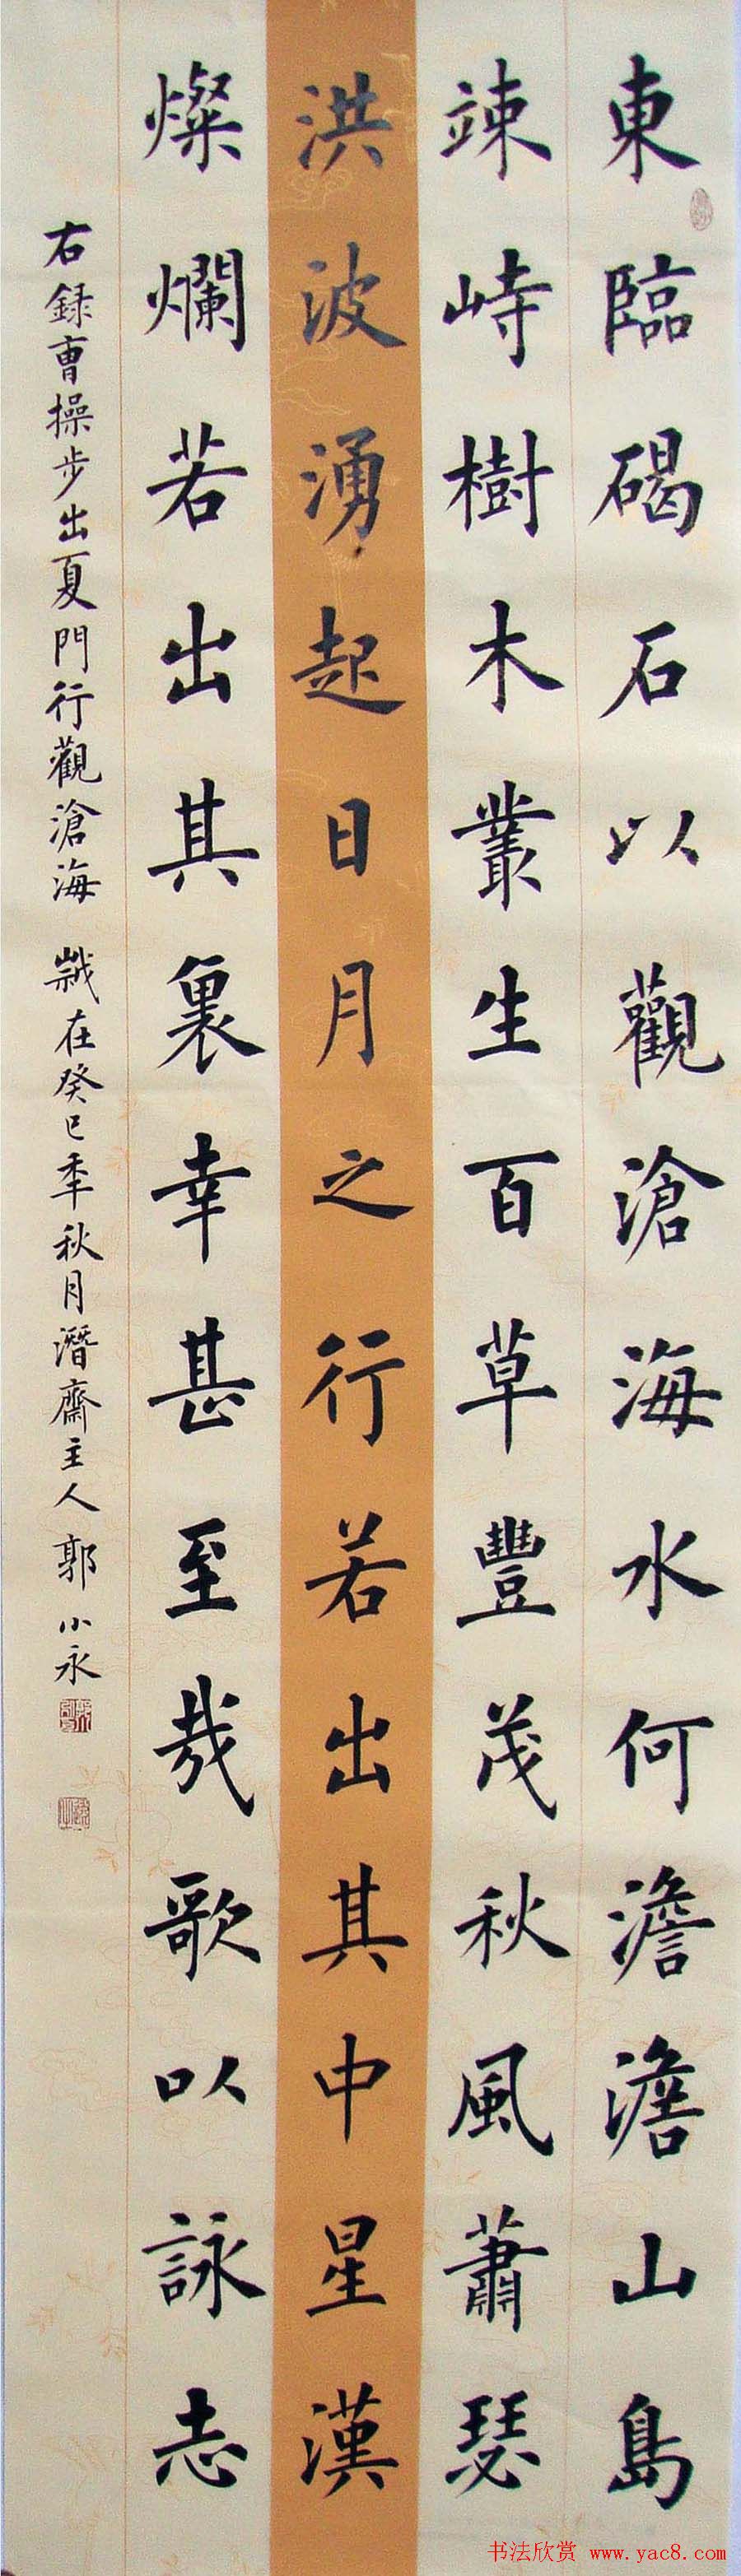 東臨碣石以觀滄海水何澹澹山島
竦峙樹木叢生百草豐茂秋風蕭瑟
洪波湧起日月之行若出其中星漢
燦爛若出其裏幸甚至哉歌以詠志
右録曹操步出夏門行觀滄海 歲在癸巳年秋月潛齋主人郭小永
书法欣赏 www.yac8.com